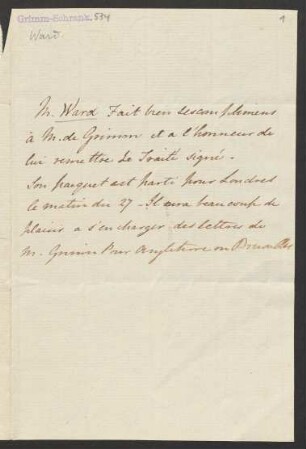 Grimm-Schrank. 534
Ward.
1
M. Ward Fait bien ses complimens
à M. de Grimm et a l'honneur de
lui remettre le Traité signé.
Son paquet est parti pour Londres
le matin du 27 - Il aura beaucoup de
plaisir a s'en charger des lettres de
M. Grimm Pour Angleterre ou Bruxelles